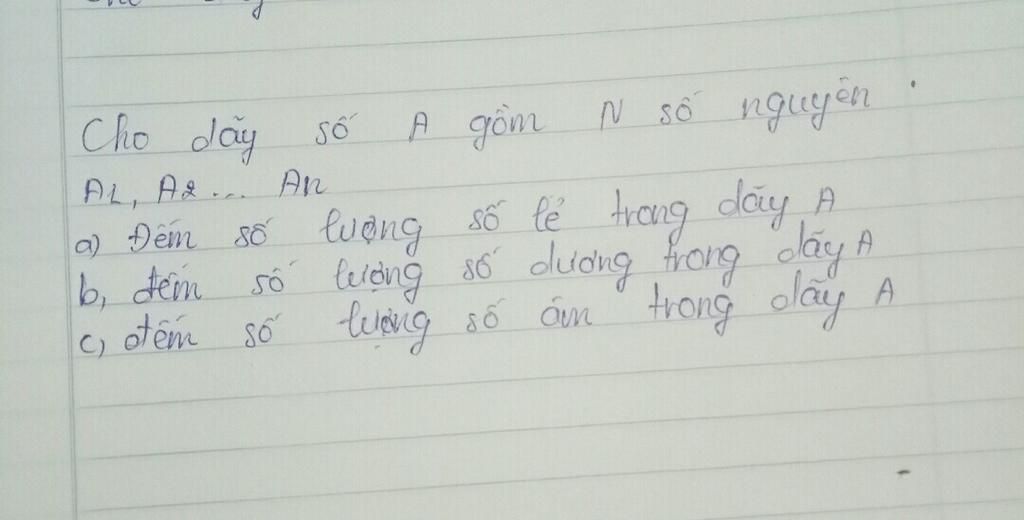 Cho dãy số A gồm N số nguyên
A1, A2... An
a) Đếm số lượng số lẻ trong dãy A
b, đếm số lượng số dương trong dãy A
c, đếm số lượng số âm trong dãy A